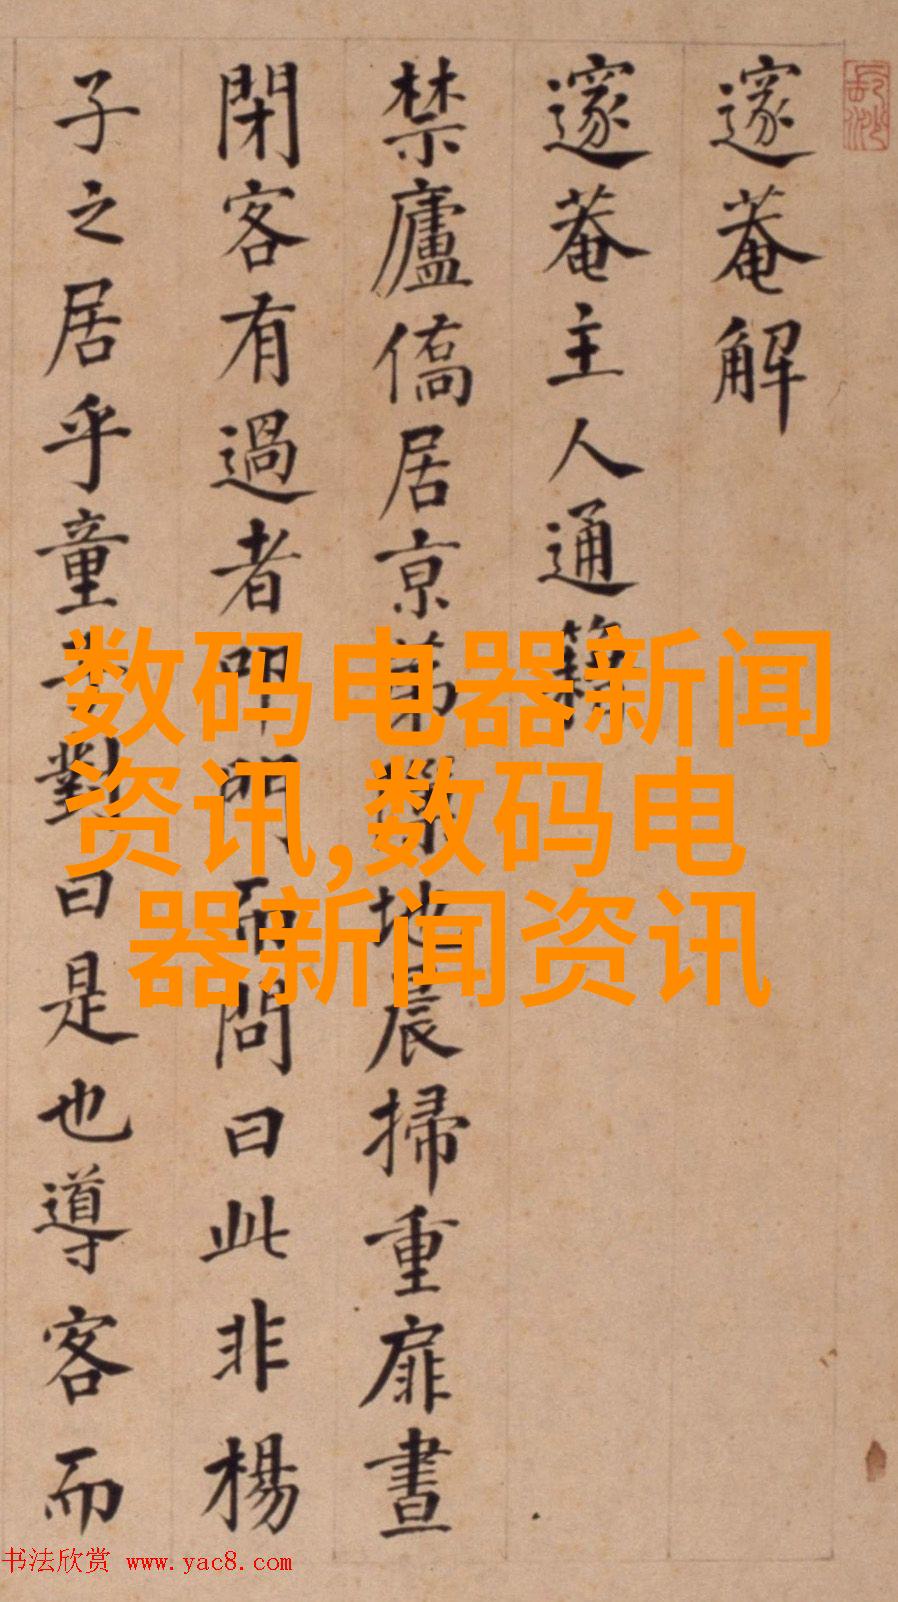 邃菴解
邃菴主人通籍
禁廬僑居京第地晨掃重扉晝
閉客有過者叩門而問曰此非楊
子之居乎童子對曰是也導客而
数码电器新闻
资讯,数码电
器新闻资讯
书法欣赏 www.yac8.com